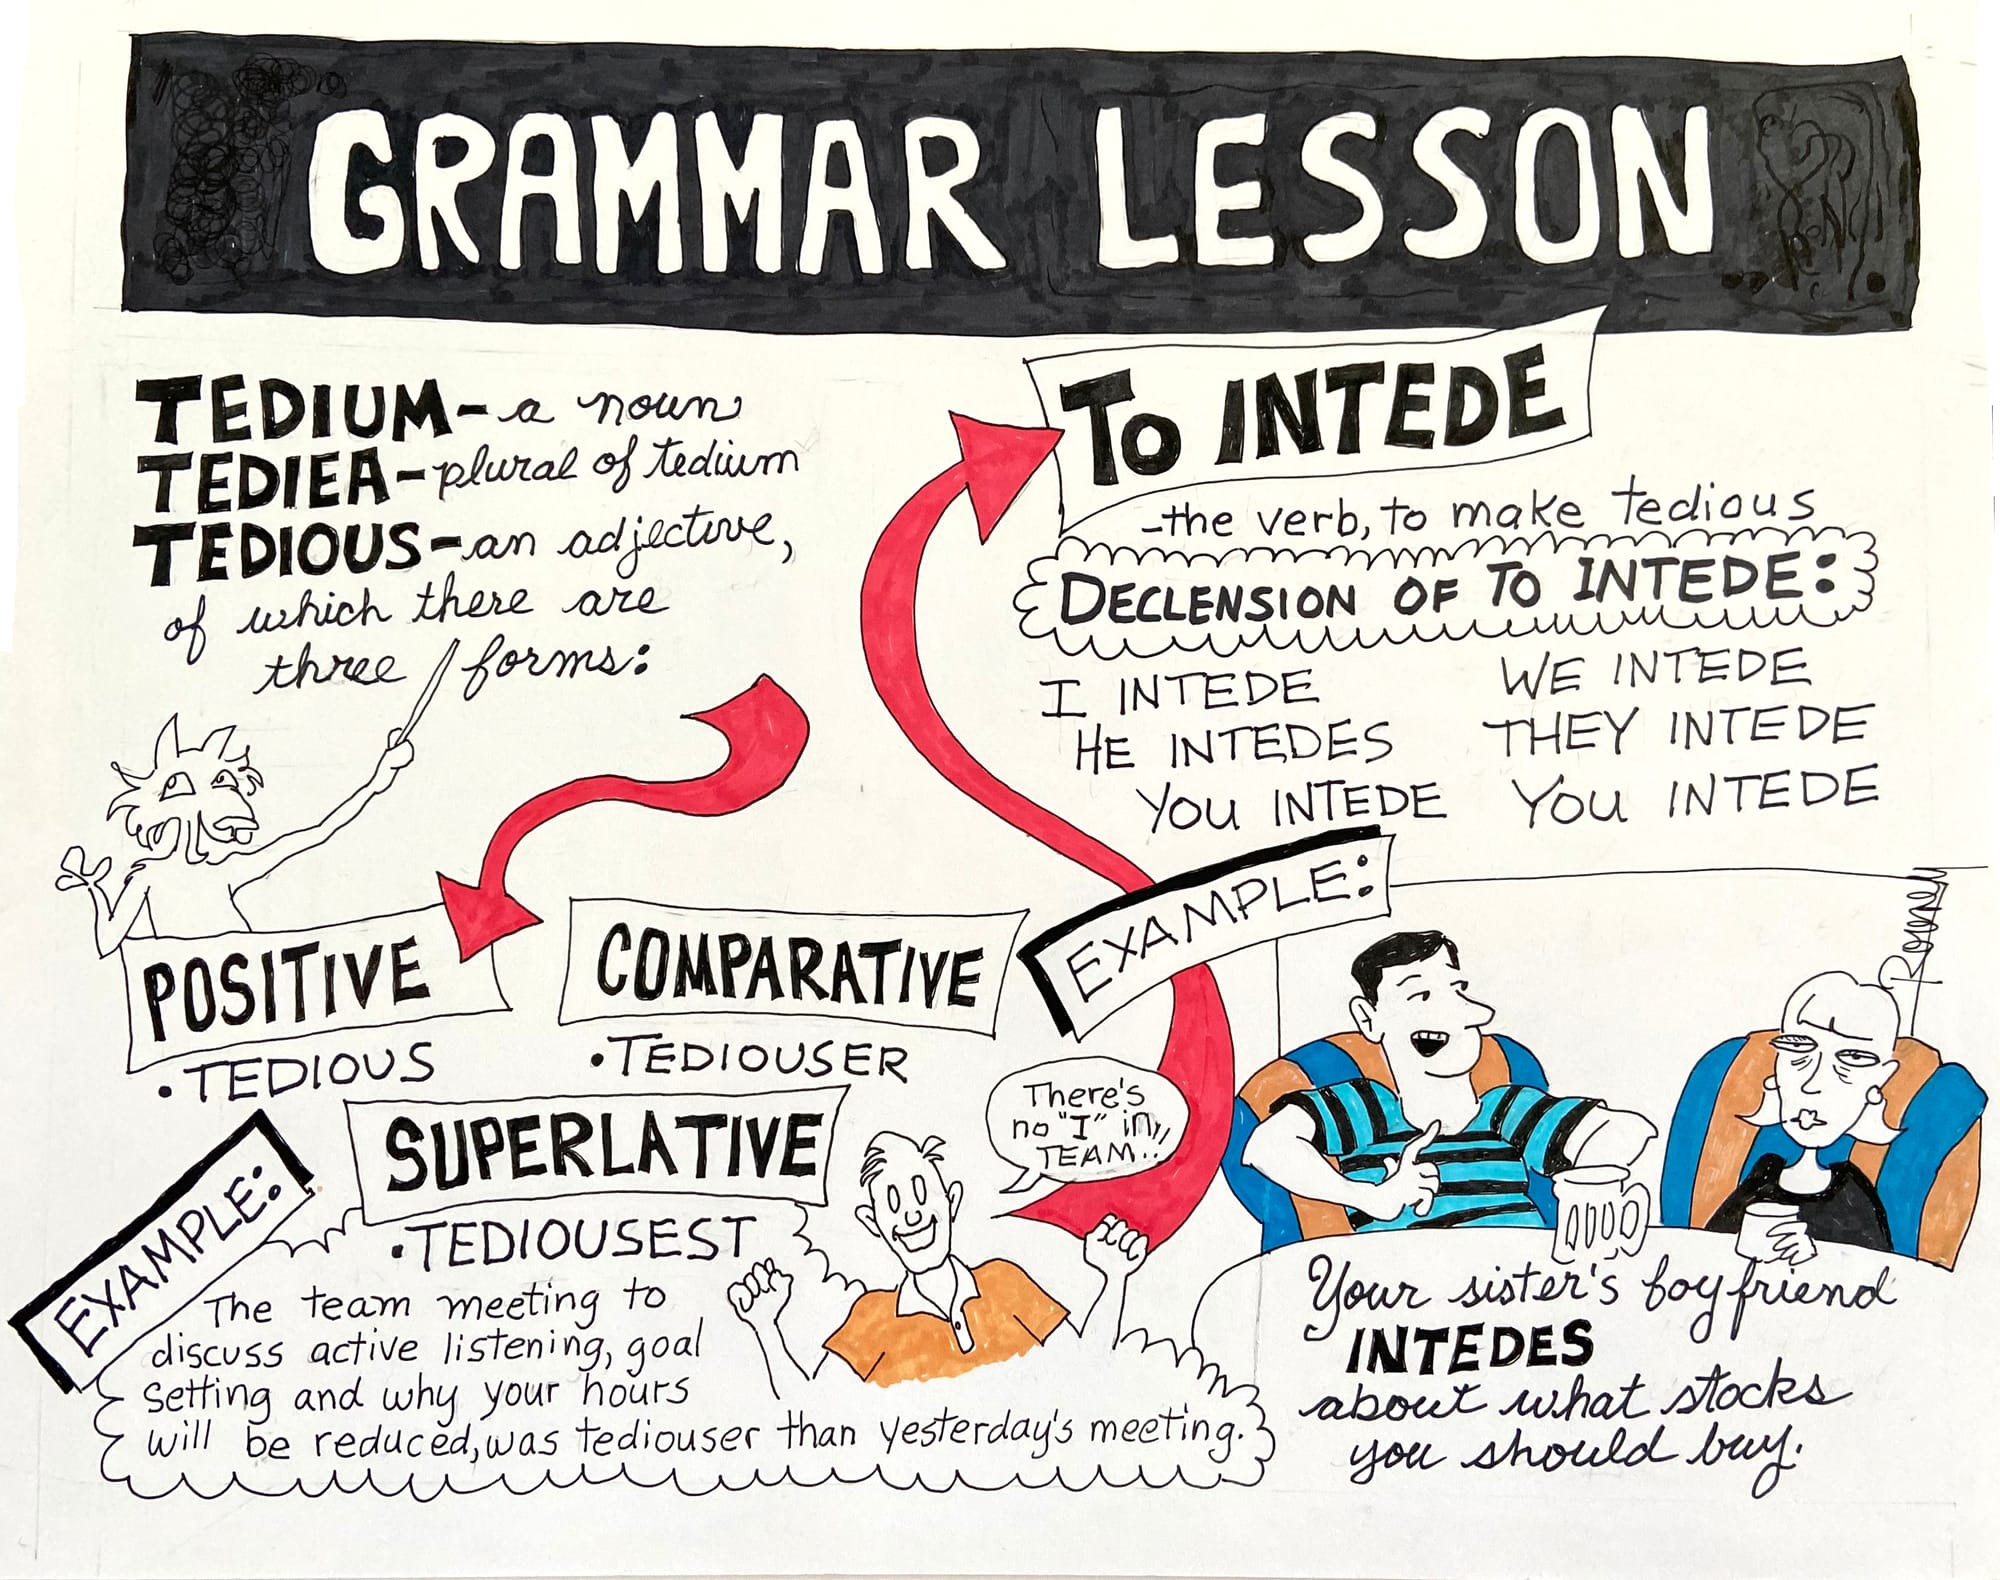 GRAMMAR LESSON
TEDIUM-a noun
TEDIEA-plural of tedium
TEDIOUS-an adjective,
of which there are
three forms:
POSITIVE
•TEDIOUS
COMPARATIVE
•TEDIOUSER
SUPERLATIVE
•TEDIOUSEST
EXAMPLE:
The team meeting to
discuss active listening, goal
setting and why your hours
will be reduced, was tediouser than yesterday's meeting.
There's
no "I" in
TEAM..!!
TO INTEDE
-the verb, to make tedious
DECLENSION OF TO INTEDE:
I INTEDE
HE INTEDES
YOU INTEDE
WE INTEDE
THEY INTEDE
YOU INTEDE
EXAMPLE:
Your sister's boyfriend
INTEDES
about what stocks
you should buy.